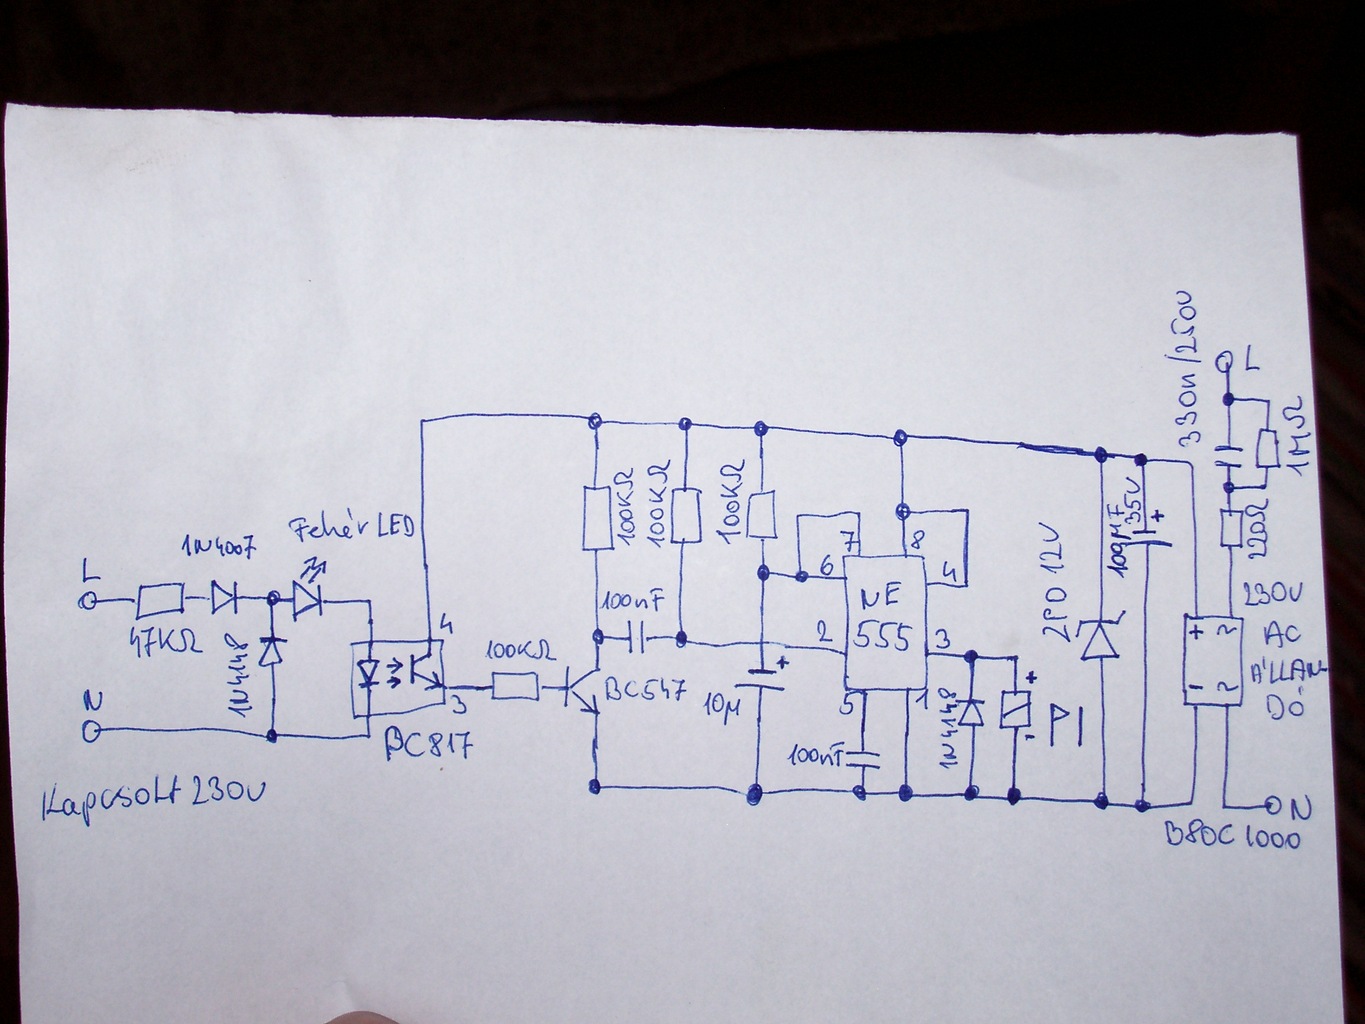 L
N
47KΩ
1N4007
1N4148
Fehér LED
4
3
BC817
Kapcsolt 230V
100KΩ
BC547
100KΩ
100KΩ
100KΩ
100nF
10µ
+
7
8
6
4
2
3
5
1
NE
555
100nF
1N4148
+
-
P1
ZPD 12V
100µF
35V
+
330n/250V
L
1MΩ
220Ω
230V
AC
ÁLLAN
DÓ
+
~
-
~
N
B80C1000